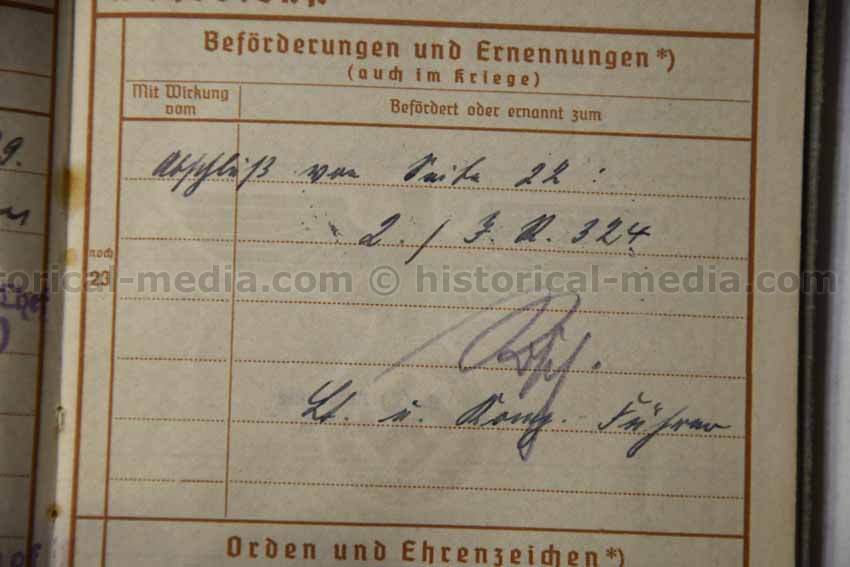 Beförderungen und Ernennungen*)
(auch im Kriege)
Mit Wirkung vom
Befördert oder ernannt zum
9.
Abschluß von Seite 22 :
2. / I. R. 324
noch
23
historical-media.com © historical-media.com
Lt. u. Komp. Führer
Orden und Ehrenzeichen*)